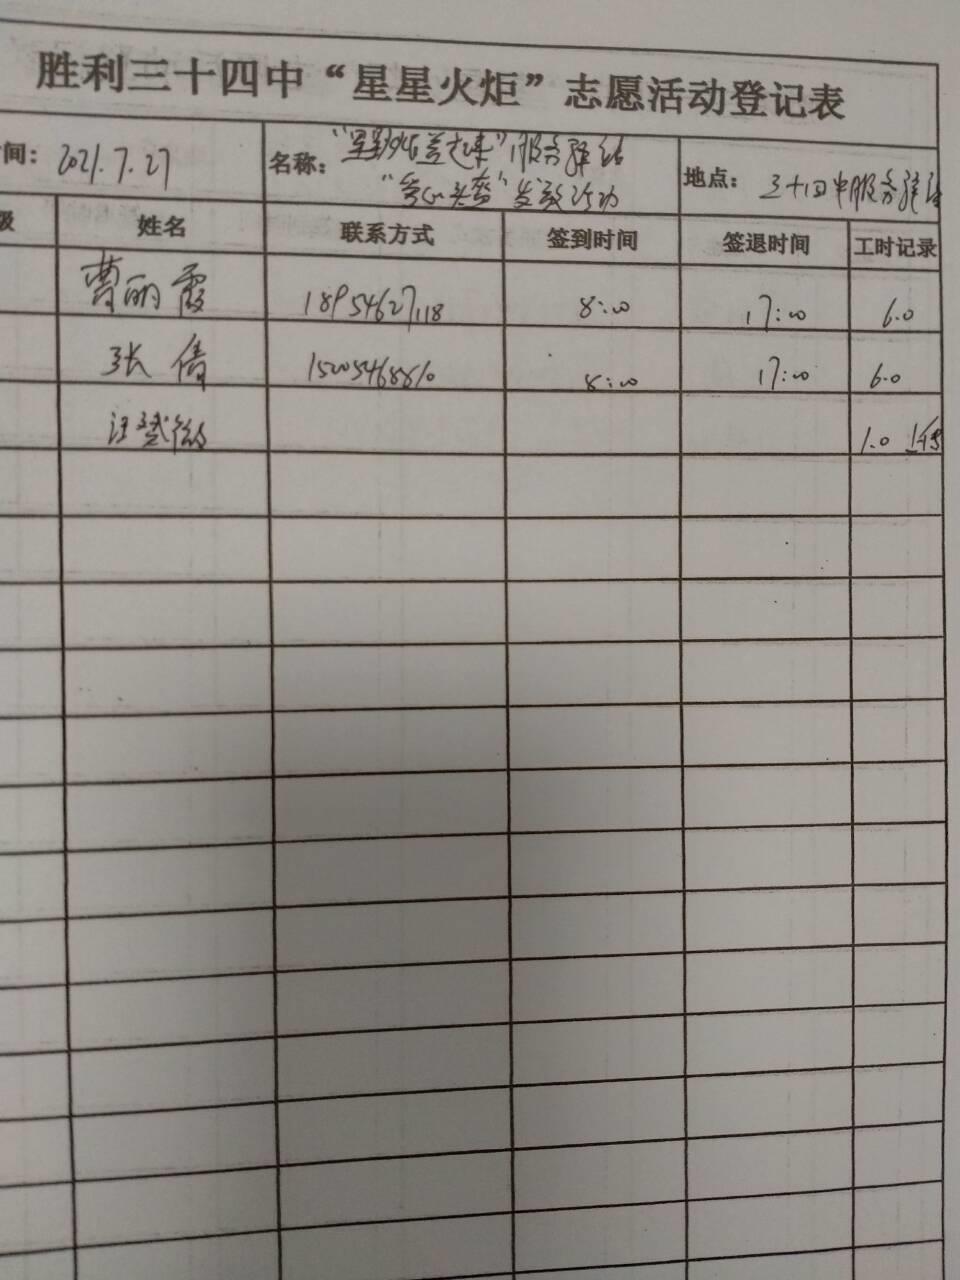 胜利三十四中“星星火炬”志愿活动登记表
间： 2021.7.27 名称： 服务驿站 地点： 三十四中服务驿站
“爱心头盔”发放活动
级 姓名 联系方式 签到时间 签退时间 工时记录
曹丽霞 18954627118 8:00 17:00 6.0
张倩 15205468810 8:00 17:00 6.0
汪 1.0 上传